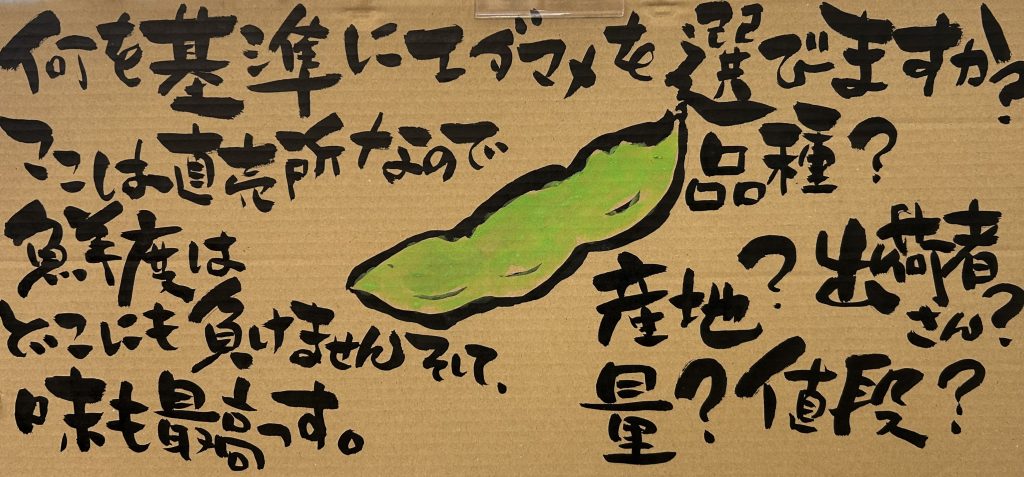 何を基準にエダマメを選びますか?
ここは直売所なので
鮮度は
どこにも負けませんそして、
味も最高っす。
品種?
産地?
出荷者
さん?
量?値段?